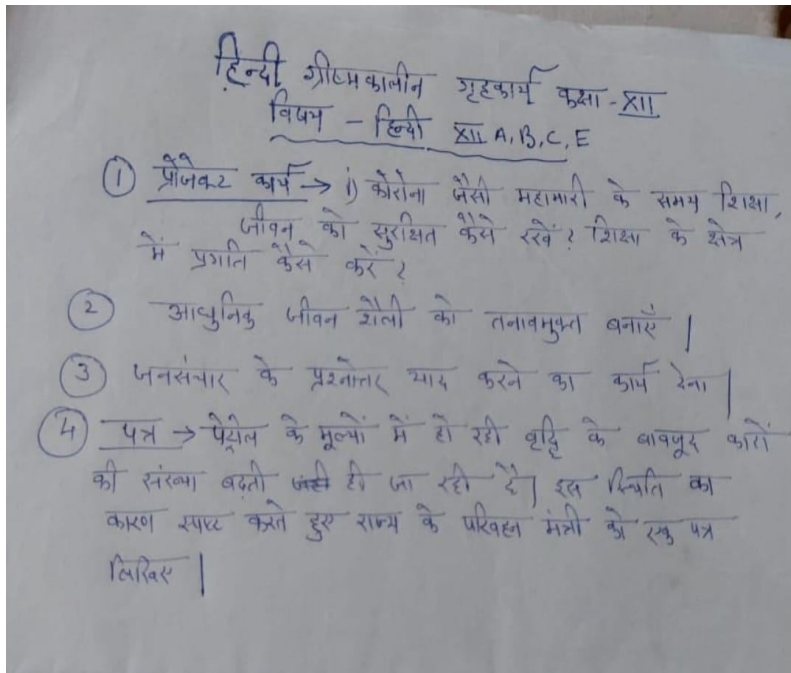 हिन्दी ग्रीष्मकालीन गृहकार्य कक्षा - XII
विषय - हिन्दी XII A, B, C, E
① प्रोजेक्ट कार्य → i) कोरोना जैसी महामारी के समय शिक्षा,
जीवन को सुरक्षित कैसे रखें? शिक्षा के क्षेत्र
में प्रगति कैसे करें?
② आधुनिक जीवन शैली को तनावमुक्त बनाएँ |
③ जनसंचार के प्रश्नोत्तर याद करने का कार्य देना |
④ पत्र → पेट्रोल के मूल्यों में हो रही वृद्धि के बावजूद कारों
की संख्या बढ़ती ही जा रही है | इस स्थिति का
कारण स्पष्ट करते हुए राज्य के परिवहन मंत्री को एक पत्र
लिखिए |